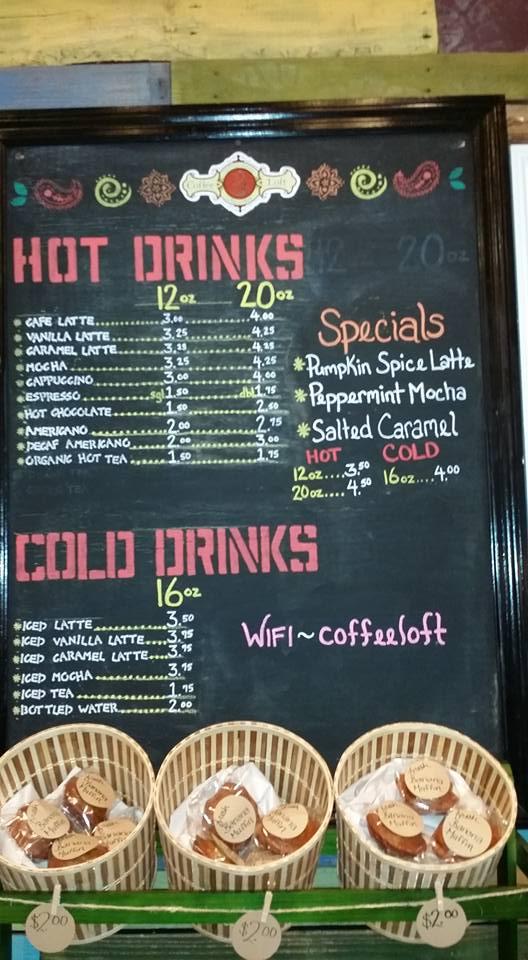 Coffee Loft
HOT DRINKS
12oz 20oz
CAFE LATTE 3.00 4.00
VANILLA LATTE 3.25 4.25
CARAMEL LATTE 3.25 4.25
MOCHA 3.25 4.25
CAPPUCCINO 3.00 4.00
ESPRESSO sgl 1.50 dbl 1.75
HOT CHOCOLATE 1.50 2.50
AMERICANO 2.00 2.75
DECAF AMERICANO 2.00 3.00
ORGANIC HOT TEA 1.50 1.75
Specials
Pumpkin Spice Latte
Peppermint Mocha
Salted Caramel
HOT COLD
12oz....3.50 16oz....4.00
20oz....4.50
COLD DRINKS
16oz
ICED LATTE 3.50
ICED VANILLA LATTE 3.75
ICED CARAMEL LATTE 3.75
ICED MOCHA 3.75
ICED TEA 1.75
BOTTLED WATER 2.00
WIFI~coffeeloft
Banana Muffin
Banana Muffin
Banana Muffin
Banana Muffin
Banana Muffin
Banana Muffin
Banana Muffin
$2.00
$2.00
$2.00